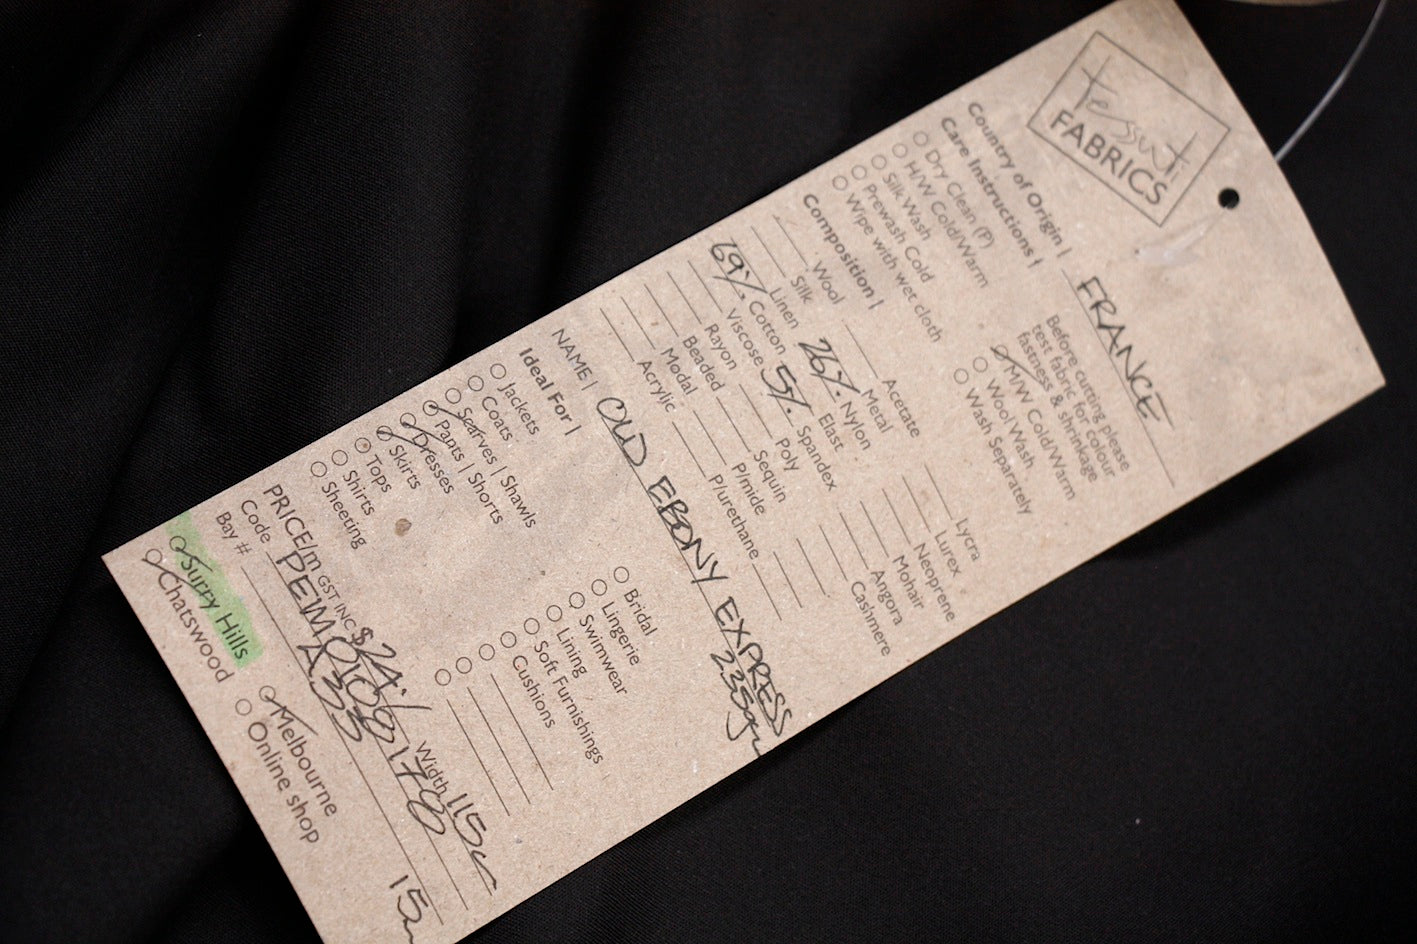 Tessuti
FABRICS
Country of Origin | FRANCE
Care Instructions †
Dry Clean (P)
H/W Cold/Warm
Silk Wash
Prewash Cold
Wipe with wet cloth
Before cutting please
test fabric for colour
fastness & shrinkage
M/W Cold/Warm
Wool Wash
Wash Separately
Composition |
Wool
Silk
Linen
69% Cotton
Viscose
Rayon
Beaded
Modal
Acrylic
Acetate
Metal
26% Nylon
Elast
5% Spandex
Poly
Sequin
P/mide
P/urethane
Lycra
Lurex
Neoprene
Mohair
Angora
Cashmere
NAME | OLD EBONY EXPRESS
235gm
Ideal For |
Jackets
Coats
Scarves | Shawls
Pants | Shorts
Dresses
Skirts
Tops
Shirts
Sheeting
Bridal
Lingerie
Swimwear
Lining
Soft Furnishings
Cushions
PRICE/m GST INC $24.- Width 115c
Code
Bay # A33
15m
Surry Hills
Chatswood
Melbourne
Online shop